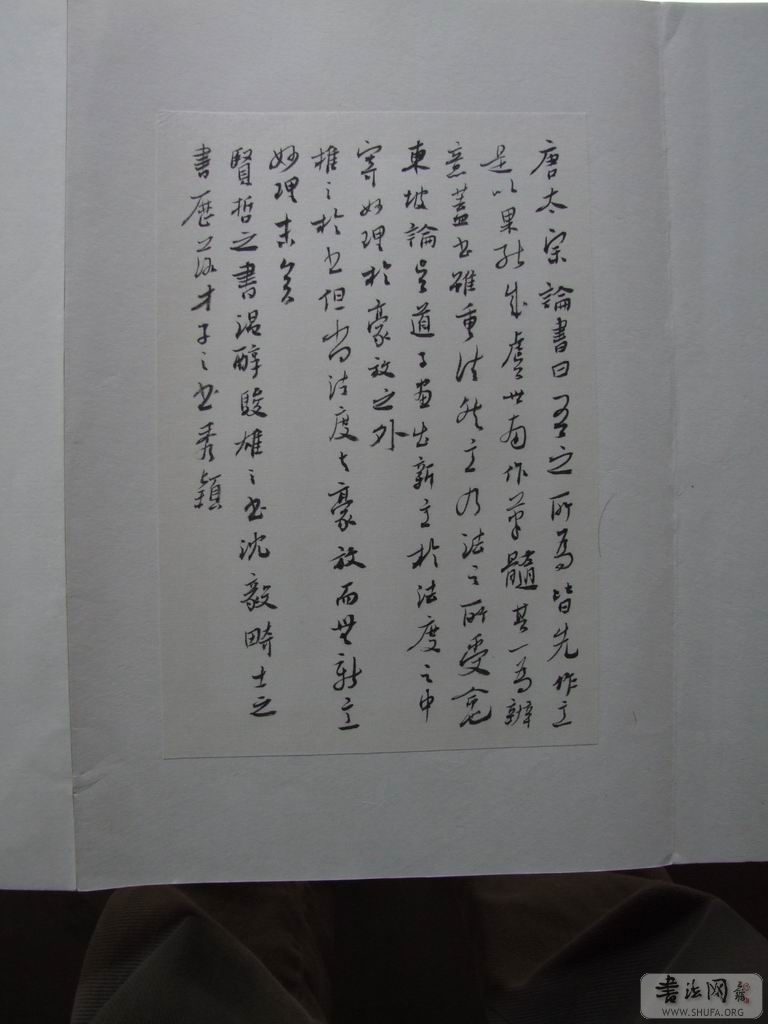 唐太宗論書曰吾之所為皆先作意
是以果能成虞世南作筆髓其一為辨
意蓋書雖重法然意乃法之所受命也
東坡論吳道子畫出新意於法度之中
寄妙理於豪放之外
推之於書但尚法度与豪放而無新意
妙理末矣
賢哲之書温醇駿雄之書沈毅畸士之
書歷落才子之書秀穎
書法网
WWW.SHUFA.ORG